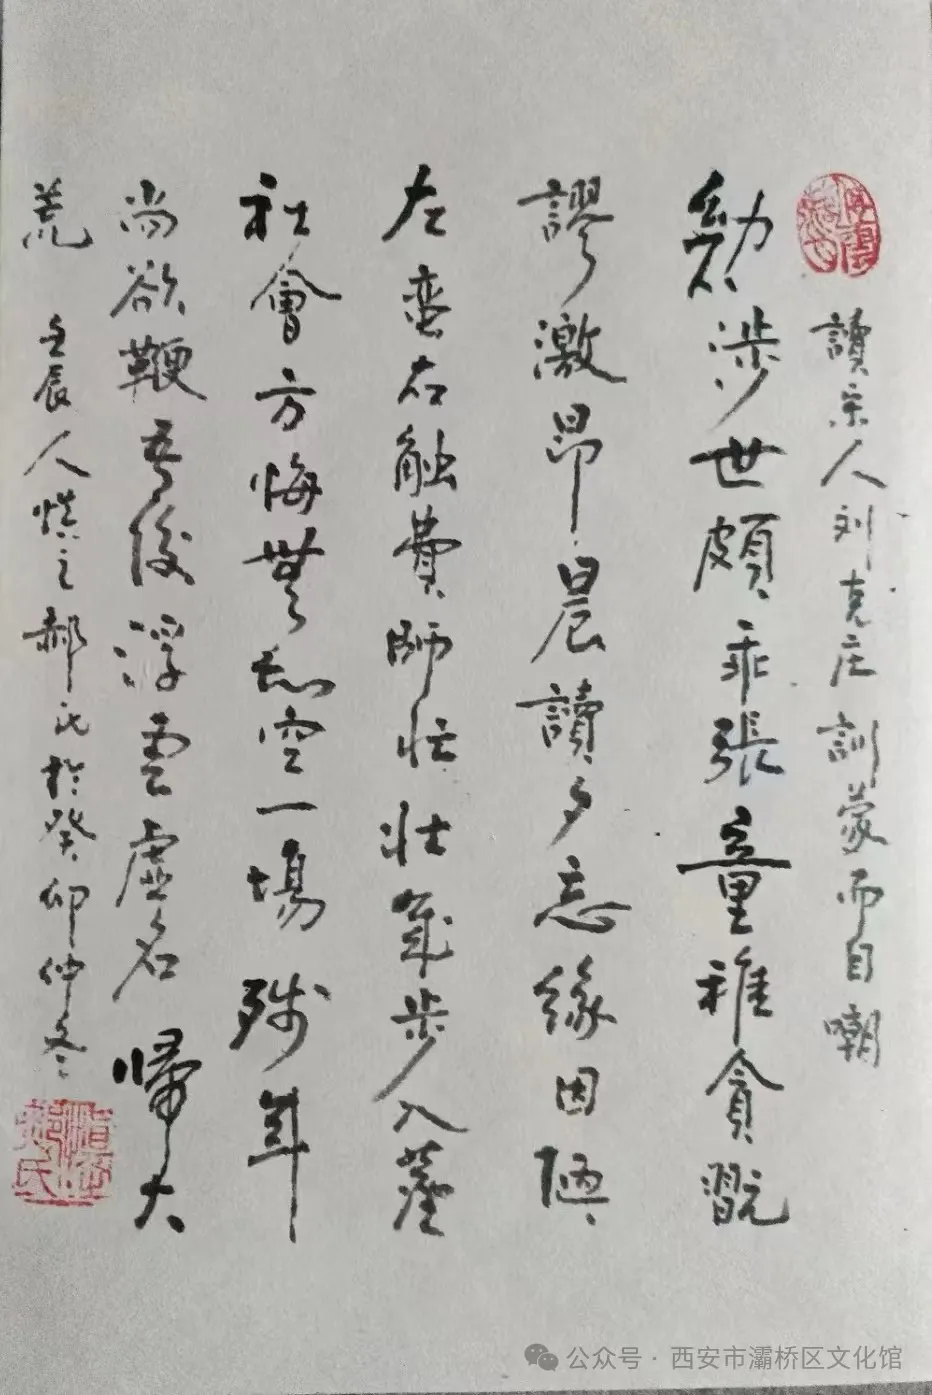 讀宋人刘克庄訓蒙而自嘲
勀涉世頗乖張童稚貪翫
謬激昂晨讀夕忘緣因陋
左蛮右触費師忙壮年步入薹
社會方悔無知空一場殘年
尚欲鞭吾後浮雲虛名歸大
荒
壬辰人慎之郝氏於癸卯仲冬
公众号·西安市灞桥区文化馆